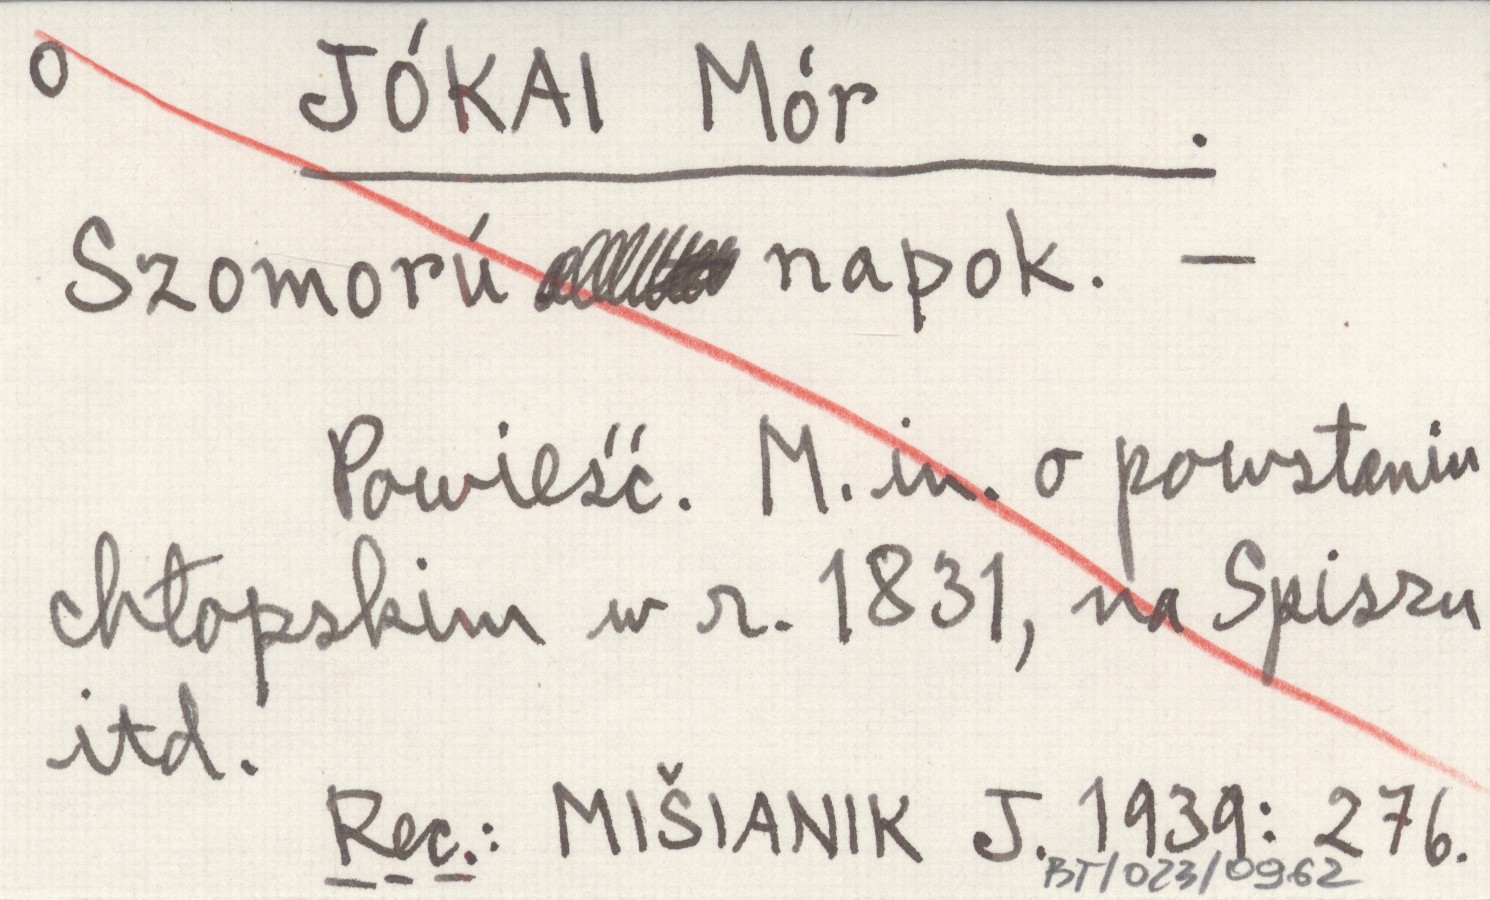 o JÓKAI Mór .
Szomorú napok. —
Powieść. M. in. o powstaniu
chłopskim w r. 1831, na Spiszu
itd.
Rec.: MIŠIANIK J. 1939: 276.
BT/023/0962